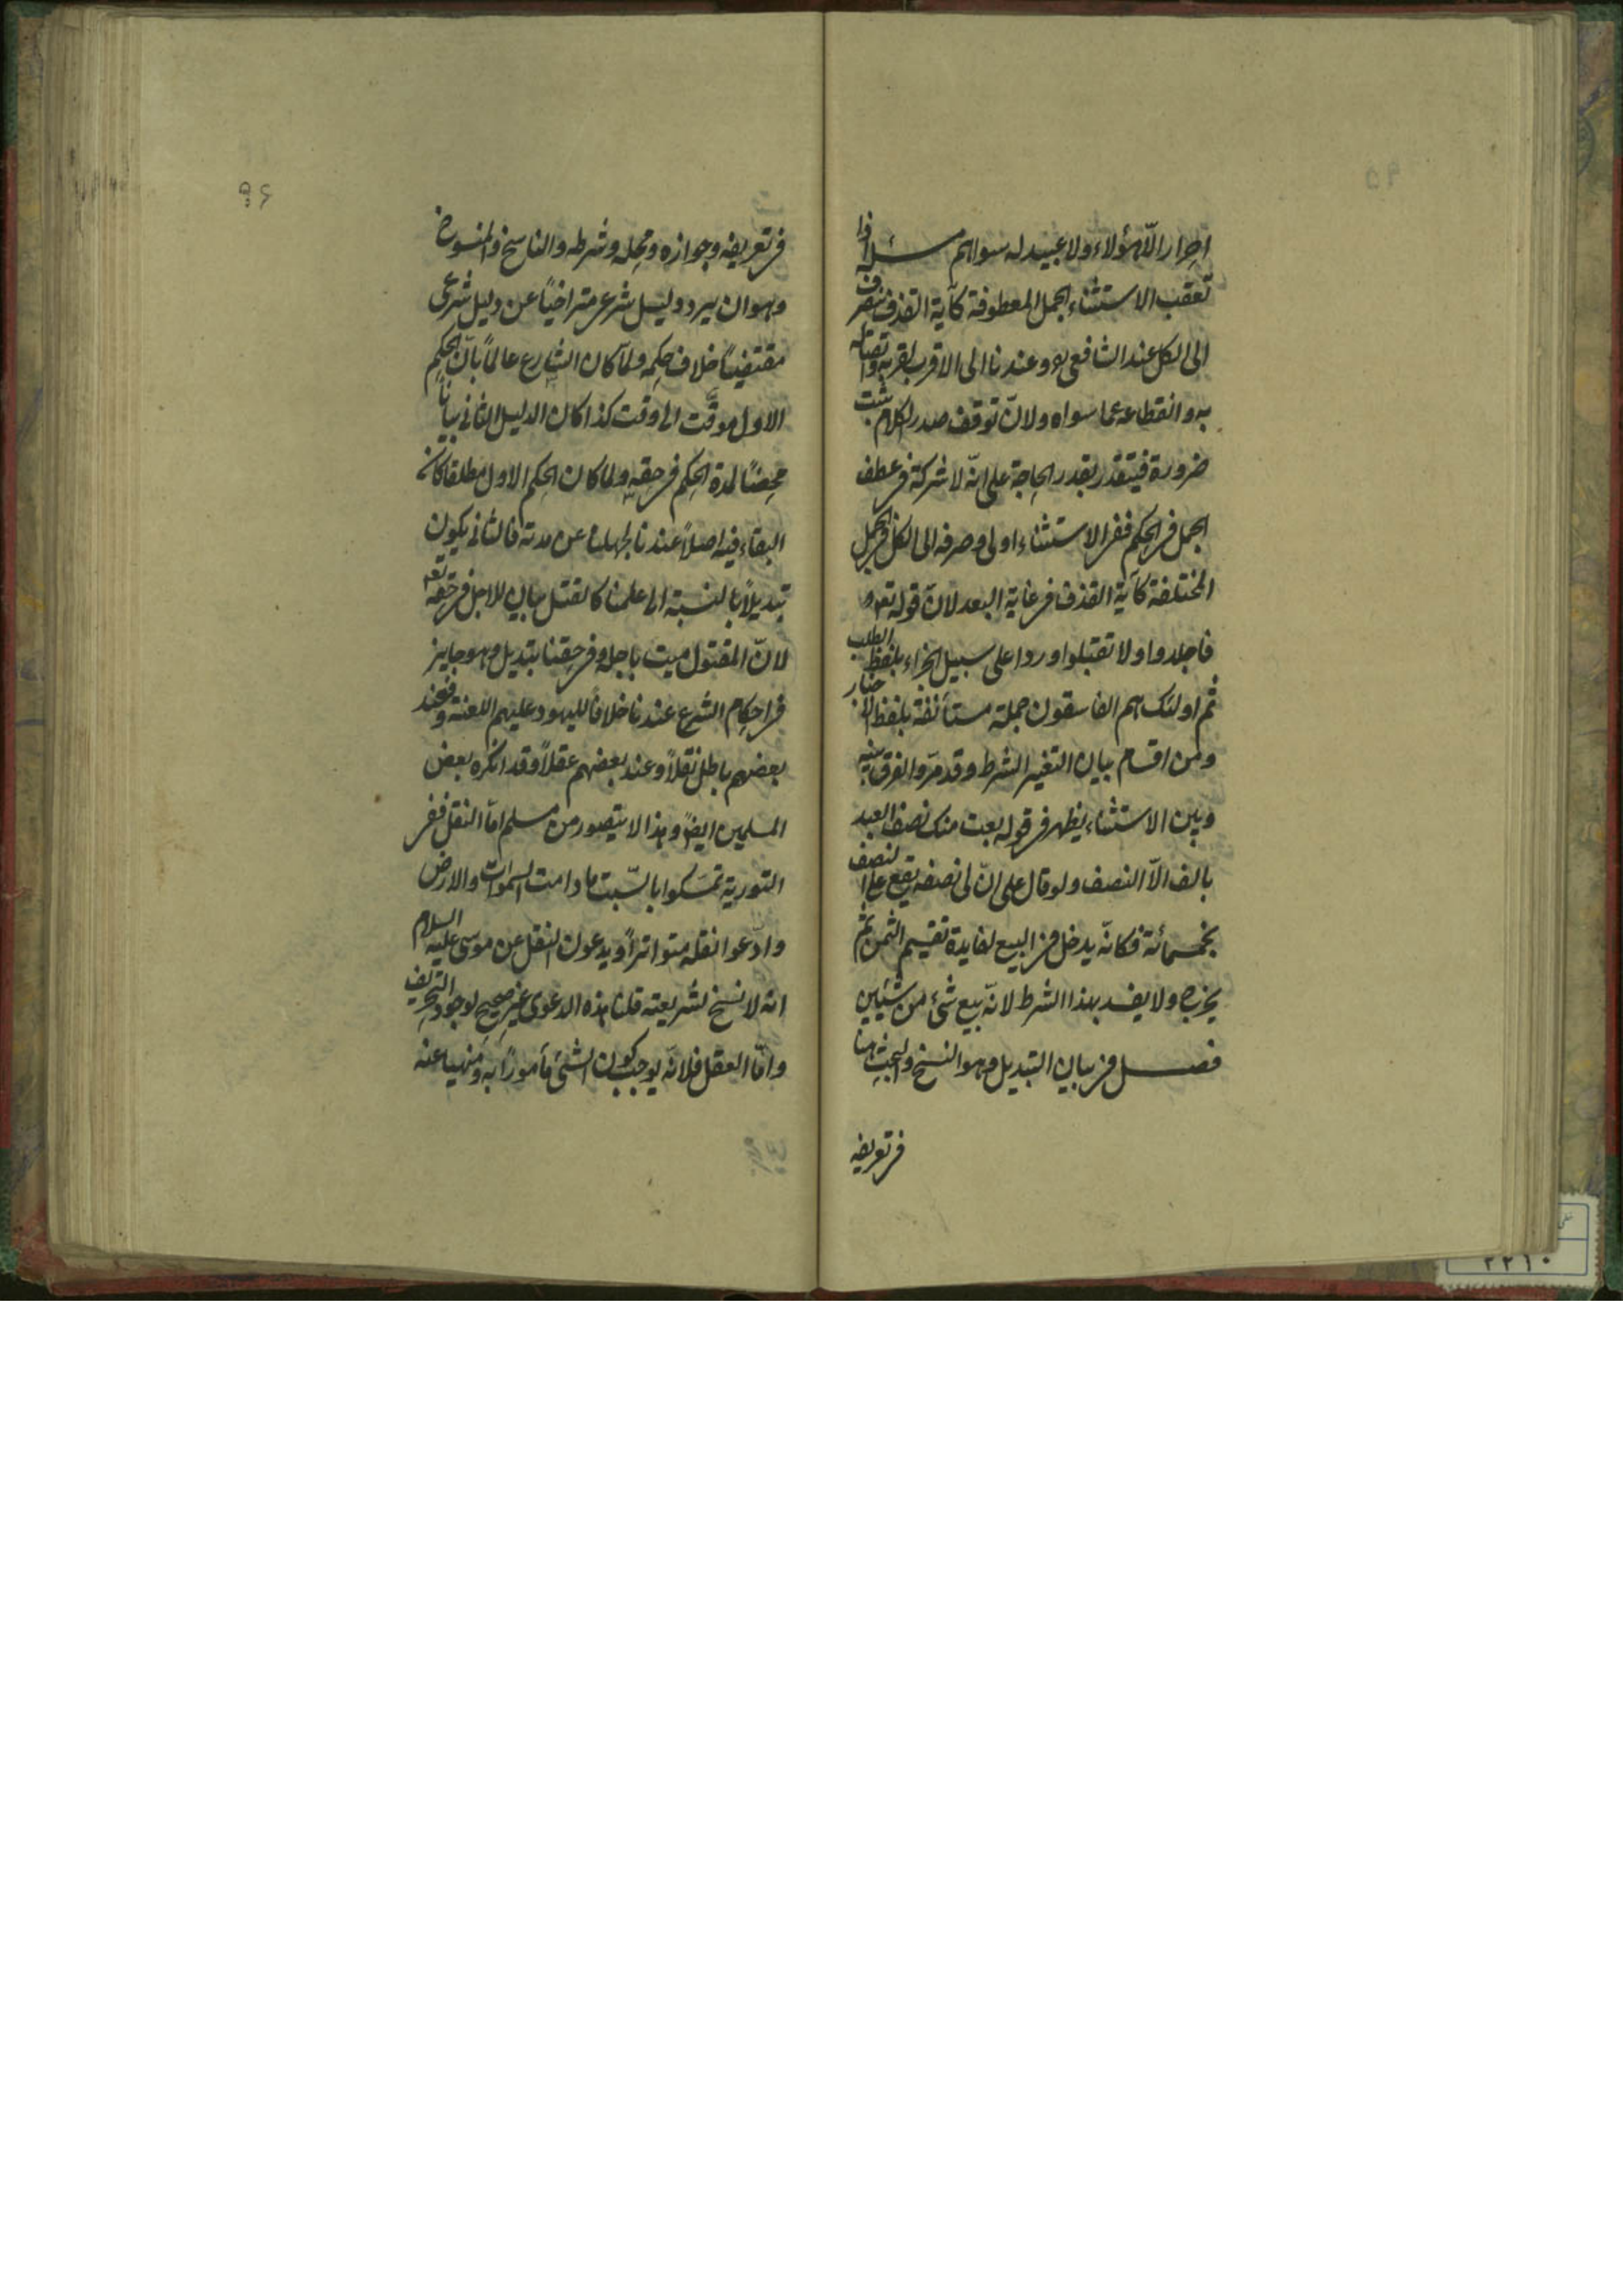 احرار الّا هؤلاء ولا عبيد له سواهم مسئلة اذا
تعقب الاستثناء الجمل المعطوفة كآية القذف ينصرف
الى الكل عند الشافعي ره وعندنا الى الاقرب لقربه واتصاله
به وانقطاعه عما سواه ولانّ توقف صدر الكلام ثبت
ضرورة فيتقدر بقدر الحاجة على انّه لا شركة في عطف
الجمل في الحكم ففي الاستثناء اولى وصرفه الى الكل في الجمل
المختلفة كآية القذف في غاية البعد لانّ قوله تعه
فاجلدوا ولا تقبلوا وردا على سبيل الجزاء بلفظ الطلب
ثم اولئك هم الفاسقون جملة مستأنفة بلفظ الاخبار
ومن اقسام بيان التغيير الشرط وقد مرّ والفرق بينه
وبين الاستثناء يظهر في قوله بعت منك نصف العبد
بالف الّا النصف ولو قال على انّ لى نصفه يقع على النصف
بخمسمائة فكانّه يدخل في البيع لفايدة تقسيم الثمن ثم
يخرج ولا يفسد بهذا الشرط لانّه بيع شئ من شيئين
فصل في بيان التبديل وهو النسخ والبحث هنا
في تعريفه
٩۶
في تعريفه وجوازه ومحله وشرطه والناسخ والمنسوخ
وهو ان يرد دليل شرعي متراخياً عن دليل شرعى
مقتضياً خلاف حكمه ولمّا كان الشارع عالماً بانّ الحكم
الاول موقّت الى وقت كذا كان الدليل الثاني بياناً
محضاً لمدة الحكم في حقه ولما كان الحكم الاول مطلقا كان
البقاء فيه اصلاً عندنا لجهلنا عن مدته فالثاني يكون
تبديلاً بالنسبة الى علمنا كالقتل بيان للاجل في حقه تعه
لانّ المقتول ميت باجله وفي حقنا تبديل وهو جايز
في احكام الشرع عندنا خلافاً لليهود عليهم اللعنة فعند
بعضهم باطل نقلاً وعند بعضهم عقلاً وقد انكره بعض
المسلمين ايضاً وهذا لا يتصور من مسلم امّا النقل ففي
التورية تمسّكوا بالسّبت ما دامت السموات والارض
وادّعوا نقله متواتراً ويدعون النقل عن موسى عليه السلام
انه لا نسخ لشريعته قلنا هذه الدعوى غير صحيح لوجود التحريف
وامّا العقل فلانّه يوجب كون الشئ مأموراً به ومنهيا عنه
٢٢١٠